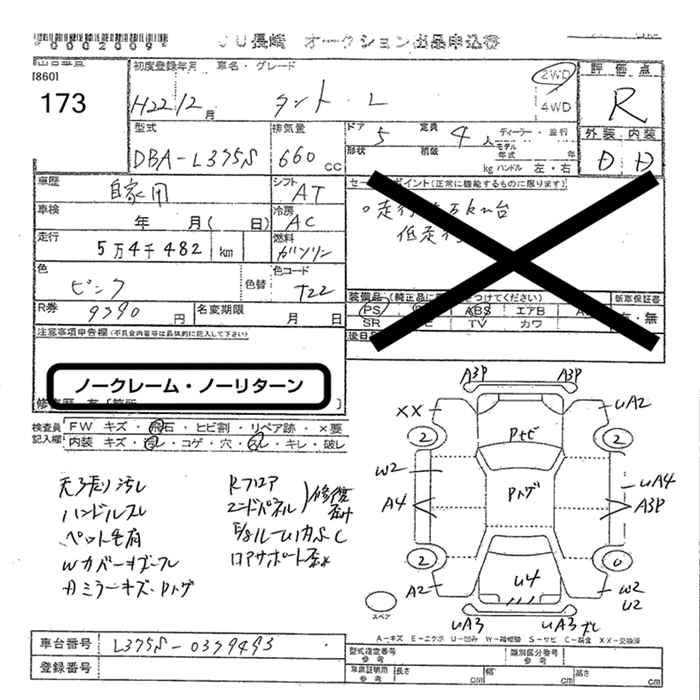 JU長崎 オークション出品申込書
[860]
初度登録年月 車名・グレード 2WD 評価点
173 H22 12月 タント・L 4WD R
外装 内装
型式 排気量 ドア 5 定員 4人 ディーラー・並行
DBA-L375S 660cc 形状 積載 kg モデル年式 年 ハンドル 左・右 D D
車歴 自家用 シフト AT
車検 年 月( 日) 冷房 AC
走行 5万4千482 km 燃料 ガソリン
色 ピンク 色替 色コード T22
R券 9390円 名変期限 月 日
○走行 万km台
低走行
装備品 (純正品に つけてください) 新車保証書
PS ABS エアB 有・無
SR TV カワ
注意事項申告欄(不具合内容等は具体的に記入して下さい)
ノークレーム・ノーリターン
検査員 FW キズ・飛石・ヒビ割・リペア跡・×要
記入欄 内装 キズ・汚レ・コゲ・穴・スレ・キレ・破レ
天張り汚レ Rフロア
ハンドルスレ エンドパネル 修復歪み
ペット毛有
Wカバーキズ・スレ
AミラーキズPハゲ コアサポート歪み
A3P A3P
XX UA2
2 Pトビ 2
W2 UA4
A4 Pハゲ A3P
2 U4 0
A2 W2
U2
UA3 UA3
スペア
A-キズ E-エクボ U-凹み W-補修跡 S-サビ C-腐食 XX-交換済
車台番号 L375S-0379493
型式指定番号 参考 類別区分番号 参考
登録番号
車庫証明用 参考 長さ cm 幅 cm 高さ cm